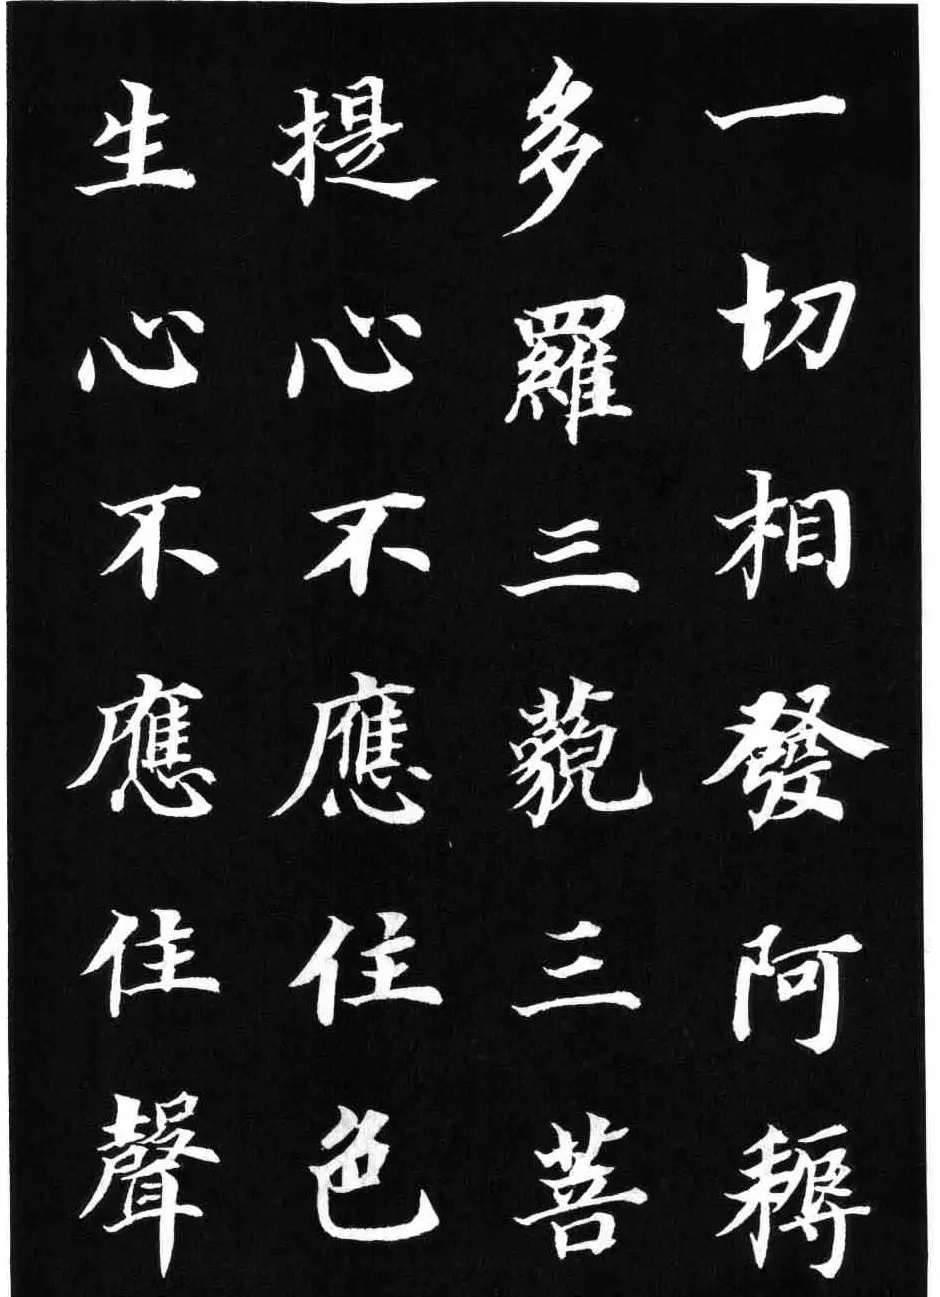 一切相發阿耨
多羅三藐三菩
提心不應住色
生心不應住聲